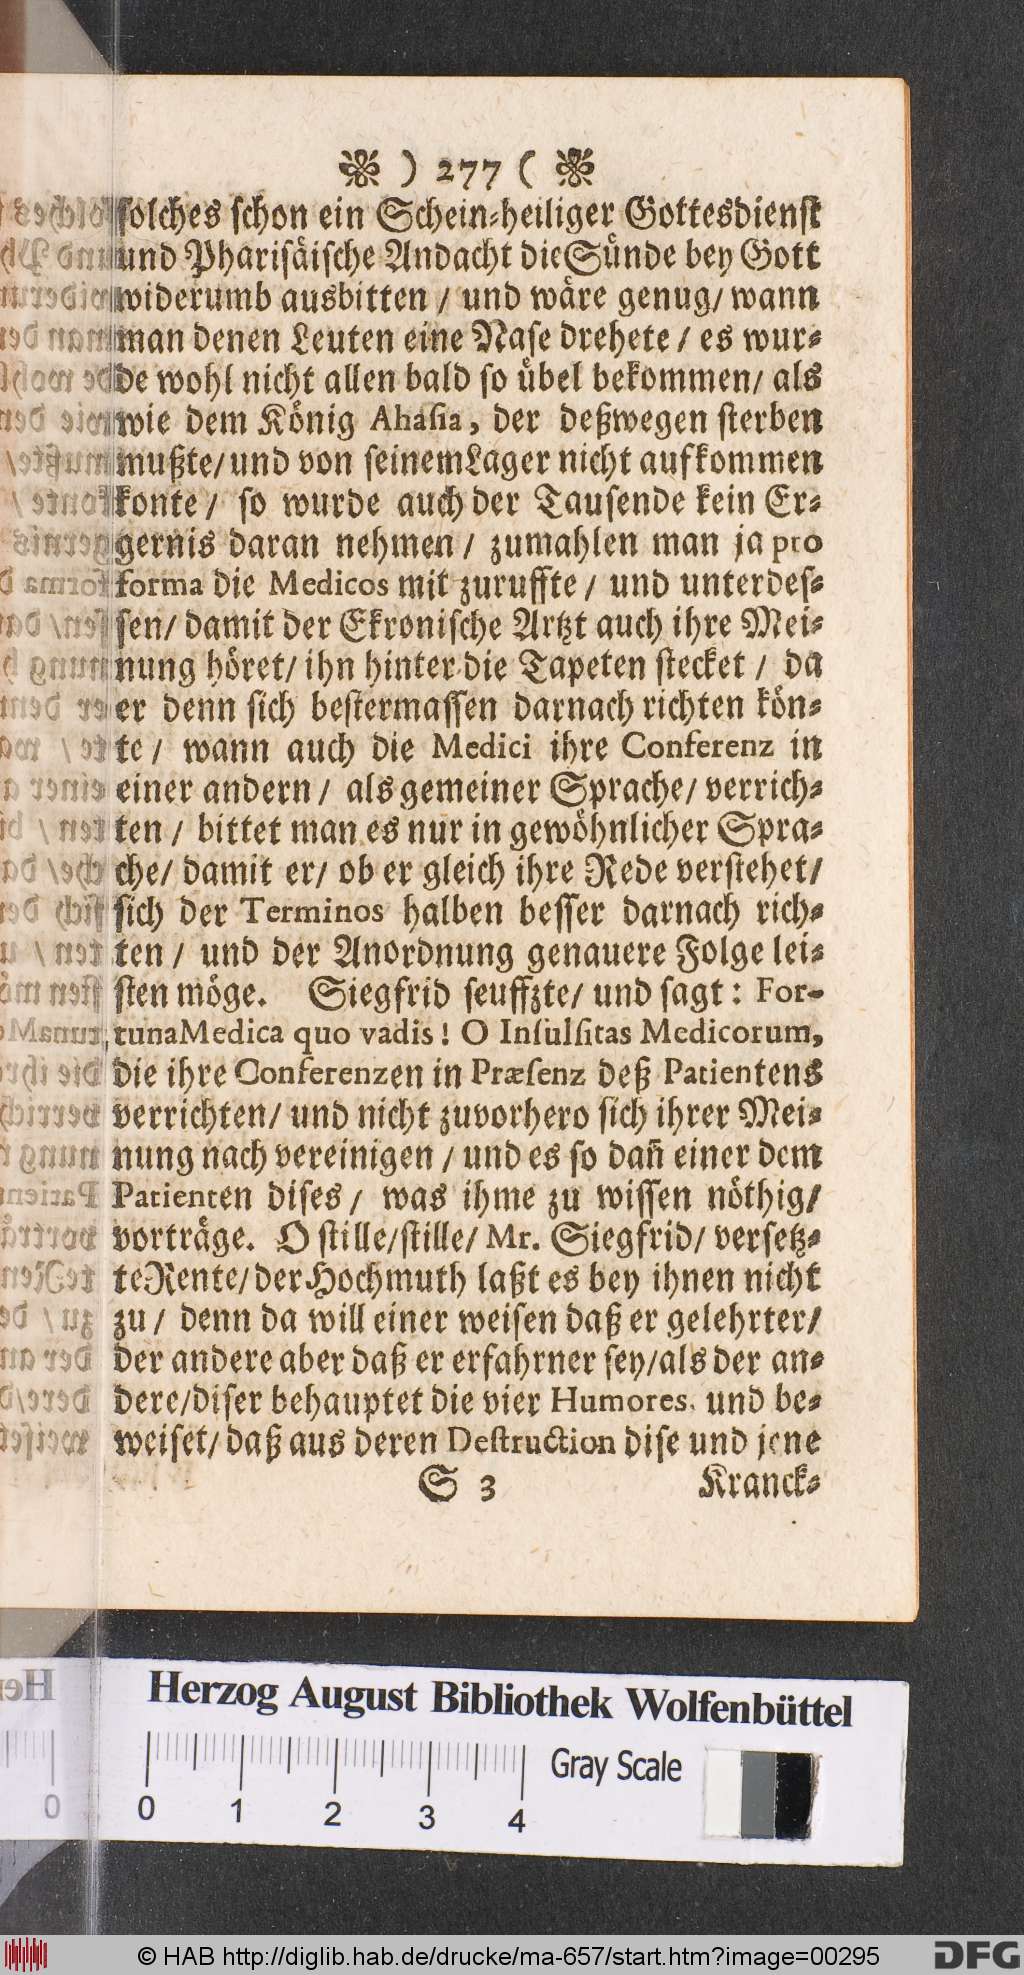 ) 277 (
solches schon ein Schein-heiliger Gottesdienst
und Pharisäische Andacht die Sünde bey Gott
widerumb ausbitten / und wäre genug / wann
man denen Leuten eine Nase drehete / es wur-
de wohl nicht allen bald so übel bekommen / als
wie dem König Ahasia, der deßwegen sterben
mußte / und von seinem Lager nicht aufkommen
konte / so wurde auch der Tausende kein Er-
gernis daran nehmen / zumahlen man ja pro
forma die Medicos mit zuruffte / und unterdes-
sen / damit der Ekronische Artzt auch ihre Mei-
nung höret / ihn hinter die Tapeten stecket / da
er denn sich bestermassen darnach richten kön-
te / wann auch die Medici ihre Conferenz in
einer andern / als gemeiner Sprache / verrich-
ten / bittet man es nur in gewöhnlicher Spra-
che / damit er / ob er gleich ihre Rede verstehet /
sich der Terminos halben besser darnach rich-
ten / und der Anordnung genauere Folge lei-
sten möge. Siegfrid seuffzte / und sagt: For-
tuna Medica quo vadis! O Insulsitas Medicorum,
die ihre Conferenzen in Præsenz deß Patientens
verrichten / und nicht zuvorhero sich ihrer Mei-
nung nach vereinigen / und es so dañ einer dem
Patienten dises / was ihme zu wissen nöthig /
vorträge. O stille / stille / Mr. Siegfrid / versetz-
te Rente / der Hochmuth laßt es bey ihnen nicht
zu / denn da will einer weisen daß er gelehrter /
der andere aber daß er erfahrner sey / als der an-
dere / diser behauptet die vier Humores, und be-
weiset / daß aus deren Destruction dise und jene
S 3 Kranck-
Herzog August Bibliothek Wolfenbüttel
Gray Scale
0 1 2 3 4
© HAB http://diglib.hab.de/drucke/ma-657/start.htm?image=00295
DFG